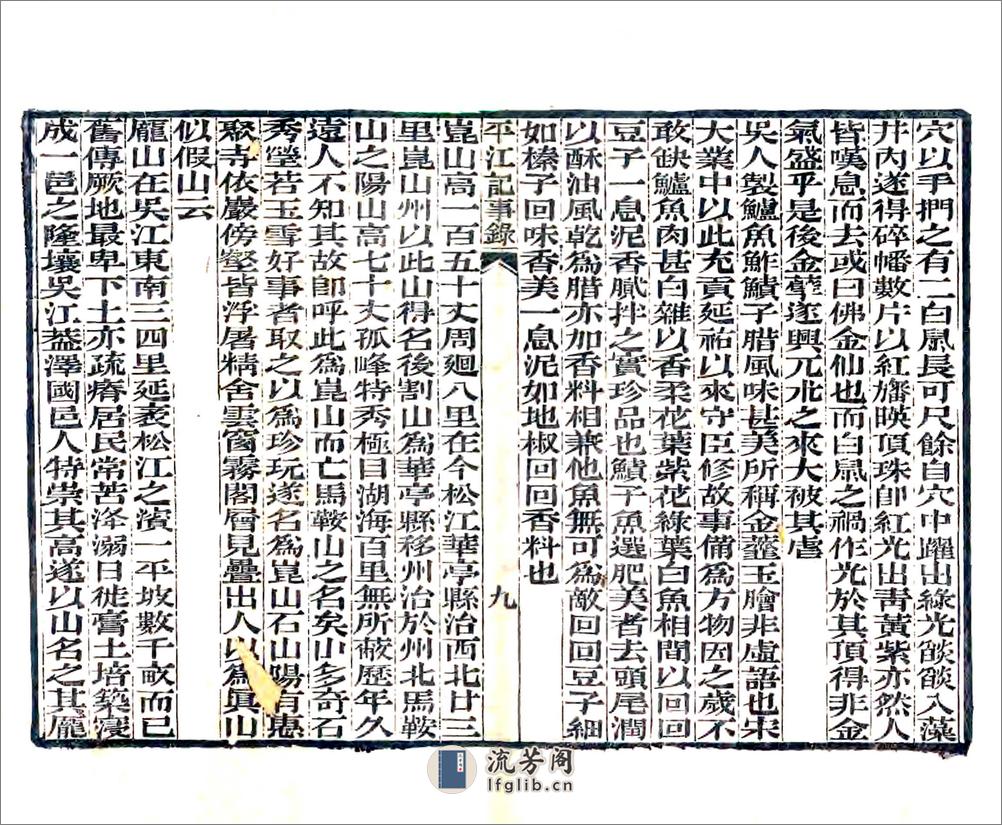 穴以手捫之有二白鼠長可尺餘自穴中躍出綠光燄燄入藻
井內遂得碎幡數片以紅旛暎頂珠卽紅光出靑黃紫亦然人
皆嘆息而去或曰佛金仙也而白鼠之禍作光於其頂得非金
氣盛乎是後金薹遂興元朮之來大被其虐
吳人製鱸魚鮓鱝子腊風味甚美所稱金虀玉膾非虛語也宋
大業中以此充貢延祐以來守臣修故事備爲方物因之歲不
敢缺鱸魚肉甚白雜以香柔花葉紫花綠葉白魚相間以回回
豆子一息泥香膩拌之實珍品也鱝子魚選肥美者去頭尾潤
以酥油風乾爲腊亦加香料相兼他魚無可爲敵回回豆子細
如榛子回味香美一息泥如地椒回回香料也
平江記事錄 九
崑山高一百五十丈周廻八里在今松江華亭縣治西北廿三
里崑山州以此山得名後割山爲華亭縣移州治於州北馬鞍
山之陽山高七十丈孤峰特秀極目湖海百里無所蔽歷年久
遠人不知其故卽呼此爲崑山而亡馬鞍山之名矣山多奇石
秀瑩若玉雪好事者取之以爲珍玩遂名爲崑山石山陽有惠
聚寺依巖傍壑皆浮屠精舍雲窗霧閣層見疊出人以爲眞山
似假山云
龐山在吳江東南三四里延袤松江之濱一平坡數千畝而已
舊傳厥地最卑下土亦疏瘠居民常苦滲溺日徙膏土培築寖
成一邑之隆壤吳江葢澤國邑人特崇其高遂以山名之其龐
流芳阁
lfglib.cn